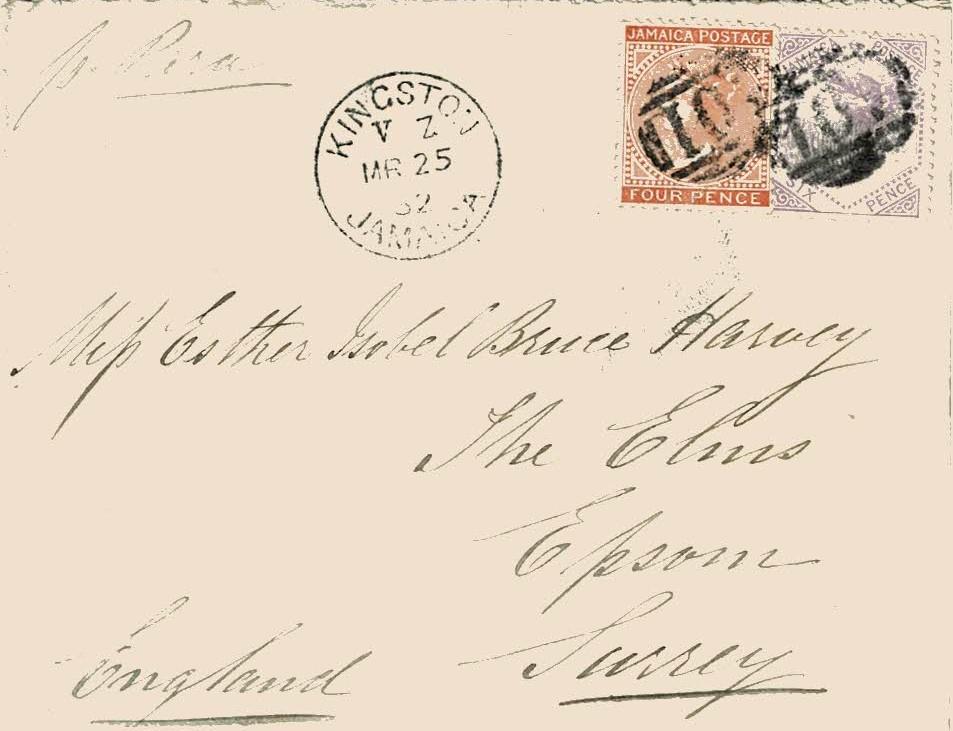 JAMAICA POSTAGE
FOUR PENCE
POSTAGE
SIX PENCE
p.
KINGSTON
V Z
MR 25
82
JAMAICA
Miss Esther Isobel Bruce Harvey
The Elms
Epsom
Surrey
England